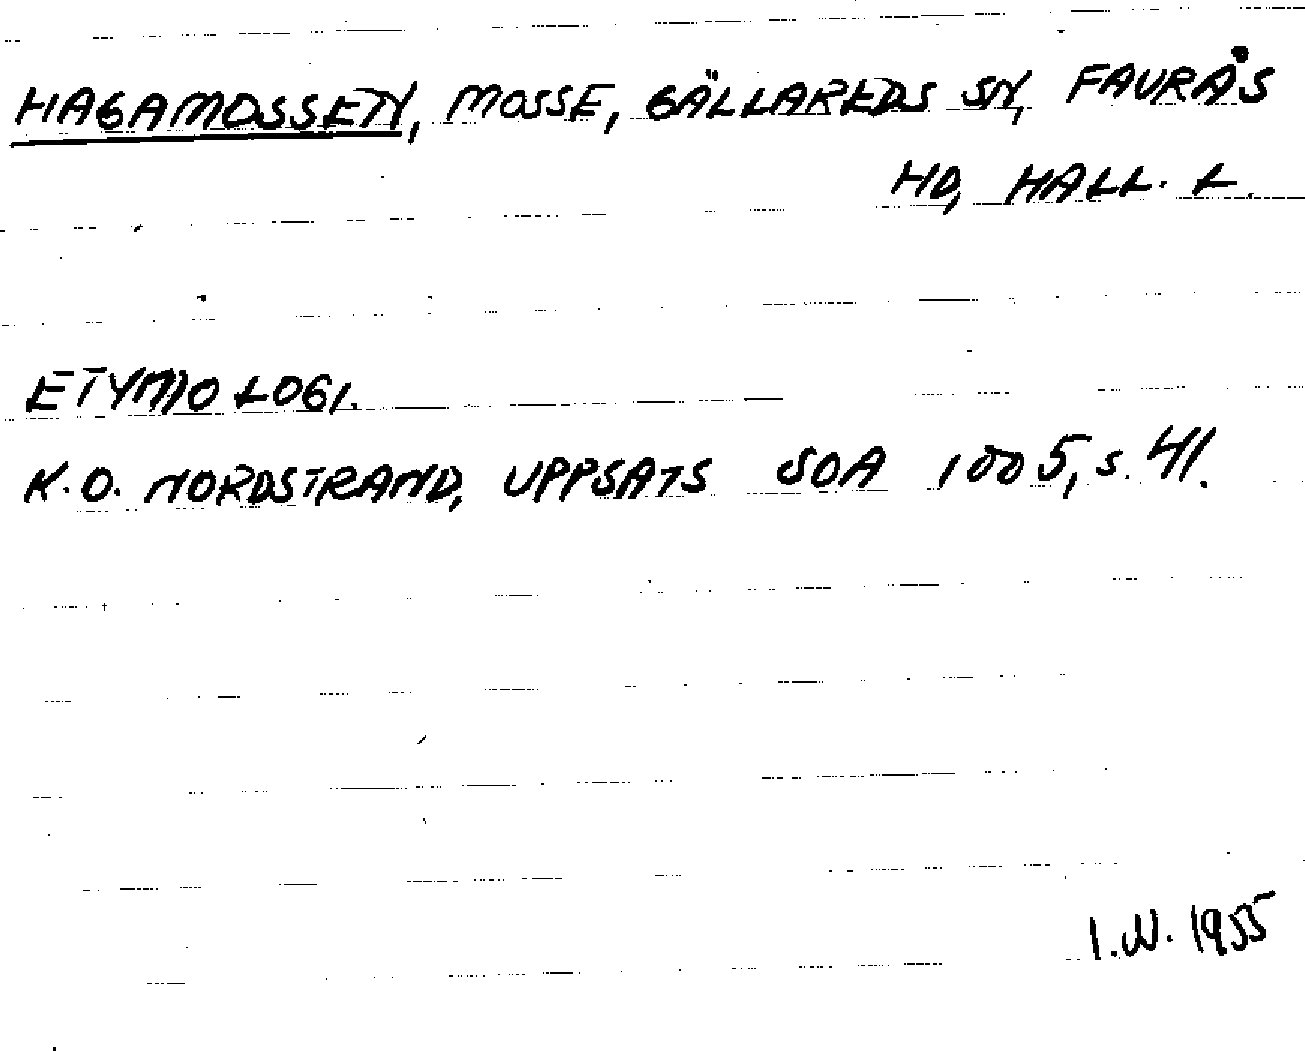 HAGAMOSSEN, MOSSE, GÄLLAREDS SN, FAURÅS
HD, HALL. L.
ETYMOLOGI.
K.O. NORDSTRAND, UPPSATS SOA 1005, S. 41.
I.W. 1955